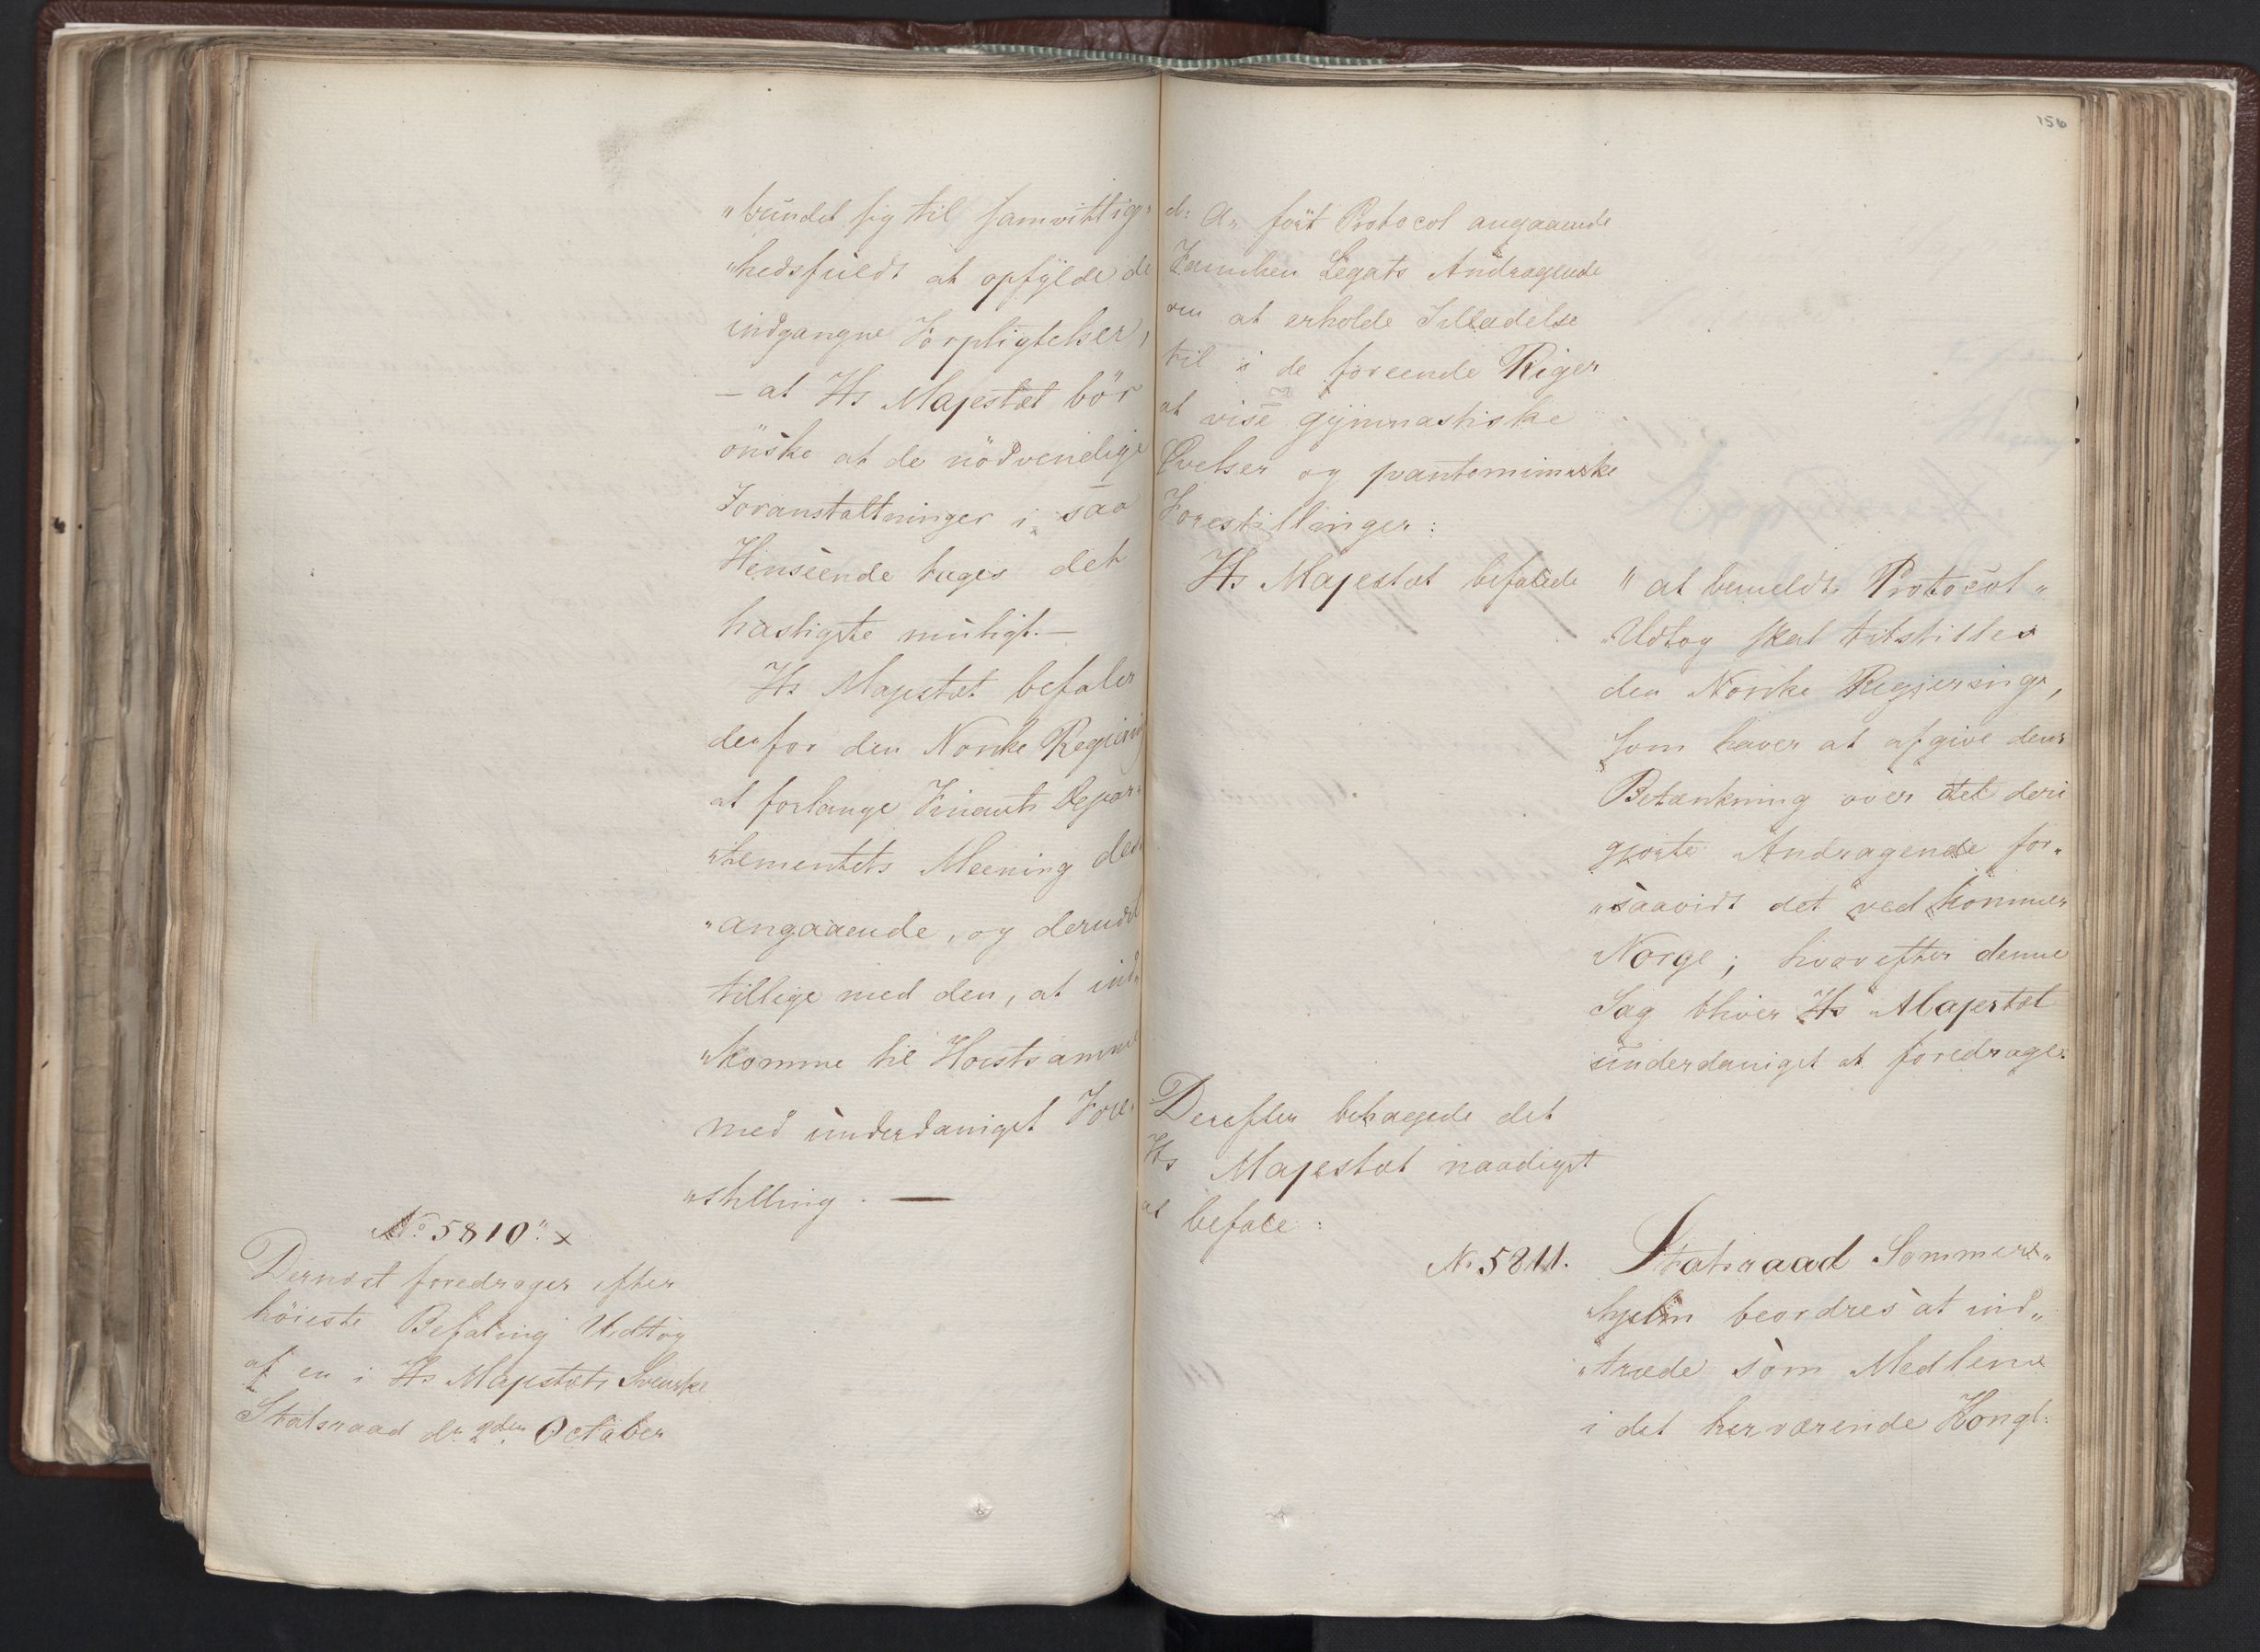 „bundet sig til samvittig„
„hedsfuldt at opfylde de
indgangne Forpligtelser,
— at Hs Majestæt bör
önske at de nödvendige
Foranstaltninger i saa
Henseende tages det
hastigste muligt. —
Hs Majestæt befaler
derfor den Norske Regiering
at forlange Finants Depar„
„tementets Meening der„
„angaaende, og derudi
tillige med den, at ind„
„komme til Höistsamme
med underdanigst Fore„
„stilling. —
No 5810" x
Dernæst foredrages efter
höieste Befaling Udtog
af en i Hs Majestæts Svenske
Statsraad dn 9den October
156
d: A: fört Protocol angaaende
Familien Legats Andragende
om at erholde Tilladelse
til i de foreende Riger
at vise gymnastiske
Øvelser og pantomimiske
Forestillinger:
Hs Majestæt befalede
" at bemeldte Protocol„
„Udtog skal tilstilles
den Norske Regjering,
som haver at afgive dens
Betænkning over det deri
gjorte Andragende for„
„saavidt det vedkommer
Norge; hvorefter denne
Sag bliver Hs Majestæt
underdanigst at foredrage.
Derefter behagede det
Hs Majestæt naadigst
at befale:
No 5811. Statsraad Sommer„
„hjelm beordres at ind„
„træde som Medlem
i det herværende Kongl: